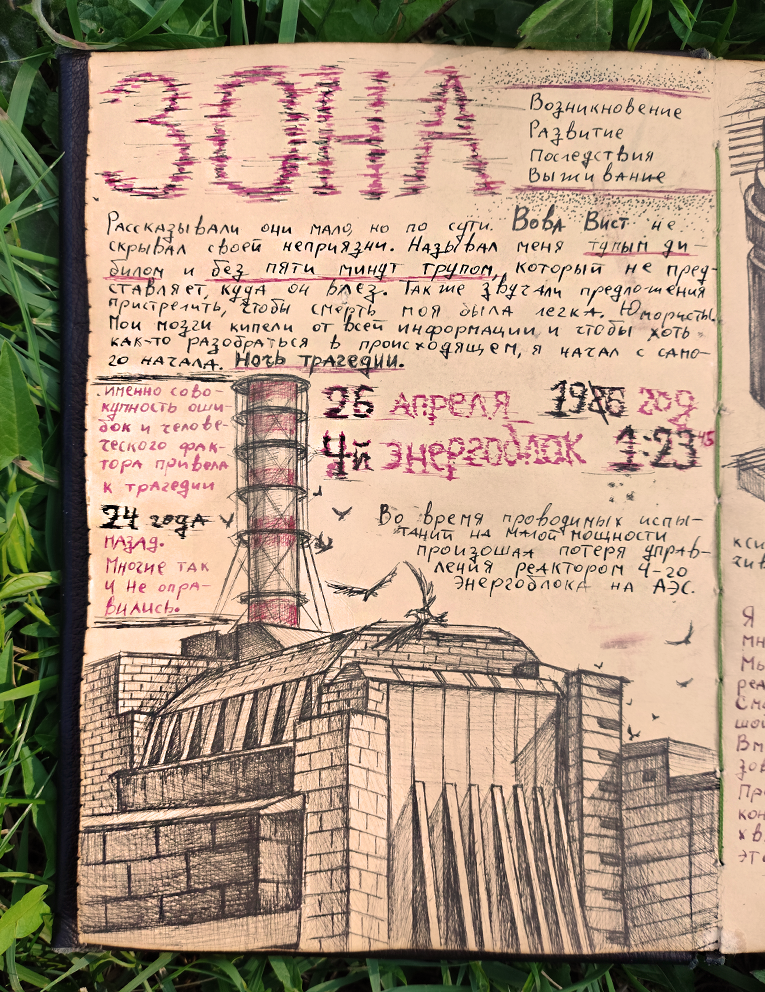 ЗОНА
Возникновение
Развитие
Последствия
Выживание
Рассказывали они мало, но по сути. Вова Вист не
скрывал своей неприязни. Называл меня тупым ди-
билом и без пяти минут трупом, который не пред-
ставляет, куда он влез. Также звучали предложения
пристрелить, чтобы смерть моя была легка. Юмористы.
Мои мозги кипели от всей информации и чтобы хоть
как-то разобраться в происходящем, я начал с само-
го начала. Ночь трагедии.
именно сово-
купность оши-
бок и челове-
ческого фак-
тора привела
к трагедии
24 года
назад.
Многие так
и не опра-
вились.
26 апреля 1986 год
4й энергоблок 1:23 45
Во время проводимых испы-
таний на малой мощности
произошла потеря управ-
ления реактором 4-го
энергоблока на АЭС.
кси
чив
Я
мн
Мы
реа
См
шой
Вм
зов
Пр
кон
хв
эт